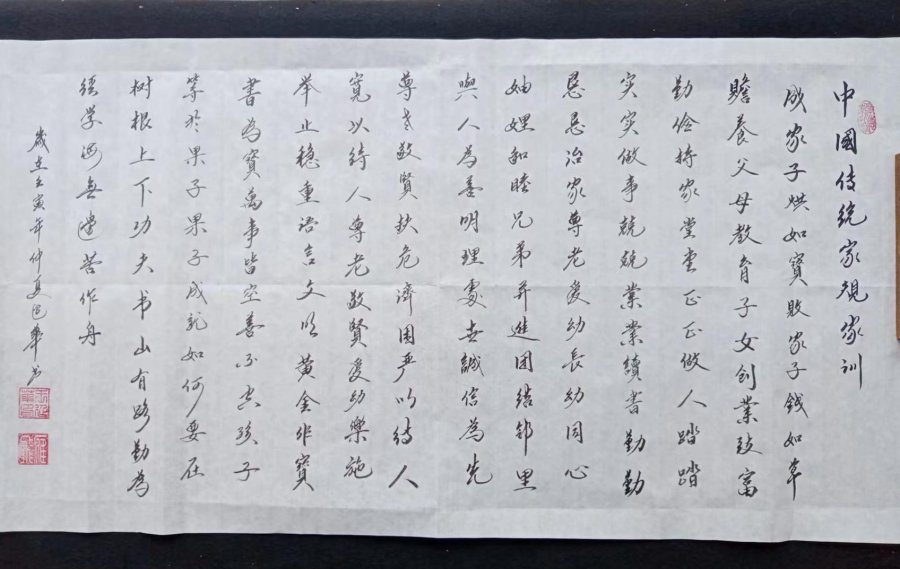 中國传统家规家训
成家子粪如寳败家子钱如草
赡养父母教育子女创业致富
勤俭持家堂堂正正做人踏踏
实实做事兢兢業業續書勤勤
恳恳治家尊老爱幼長幼同心
妯娌和睦兄弟并進团结邻里
與人為善明理處世誠信為先
尊老敬賢扶危濟困严以待人
寛以待人尊老敬賢愛幼樂施
举止穏重语言文明黄金非寳
書為寳萬事皆空善不空孩子
等於果子果子成就如何要在
树根上下功夫书山有路勤為
径学海無邊苦作舟
歲在壬寅年仲夏 華书